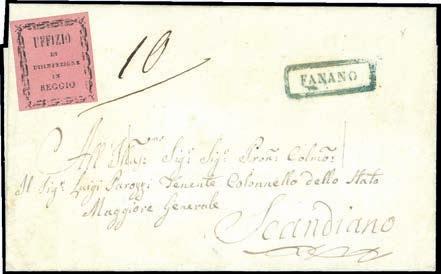 UFFIZIO
DI
DISINFEZIONE
IN
REGGIO
10
FANANO
All' Illmo: Sigr: Sigr: Pron: Colmo:
Il Sigr: Luigi Parozzi Tenente Colonnello dello Stato
Maggiore Generale
Scandiano